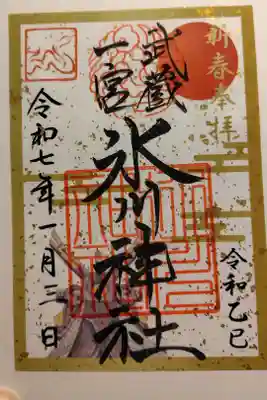 新春奉拝
武蔵
一宮
氷川神社
令和乙巳
令和七年一月三日